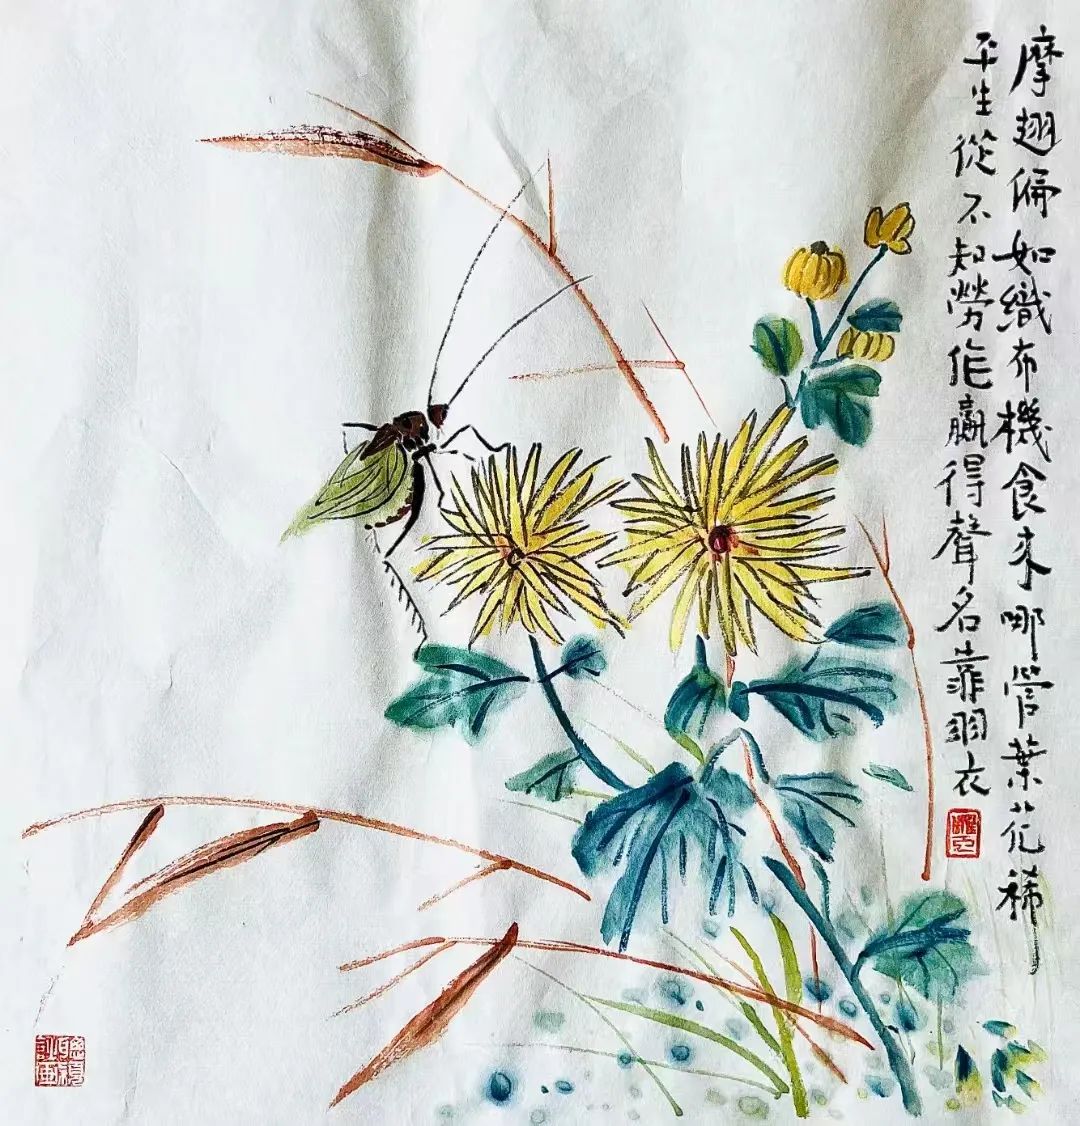 摩翅偏如織布機食來哪管葉花稀
平生從不知勞作贏得聲名靠羽衣